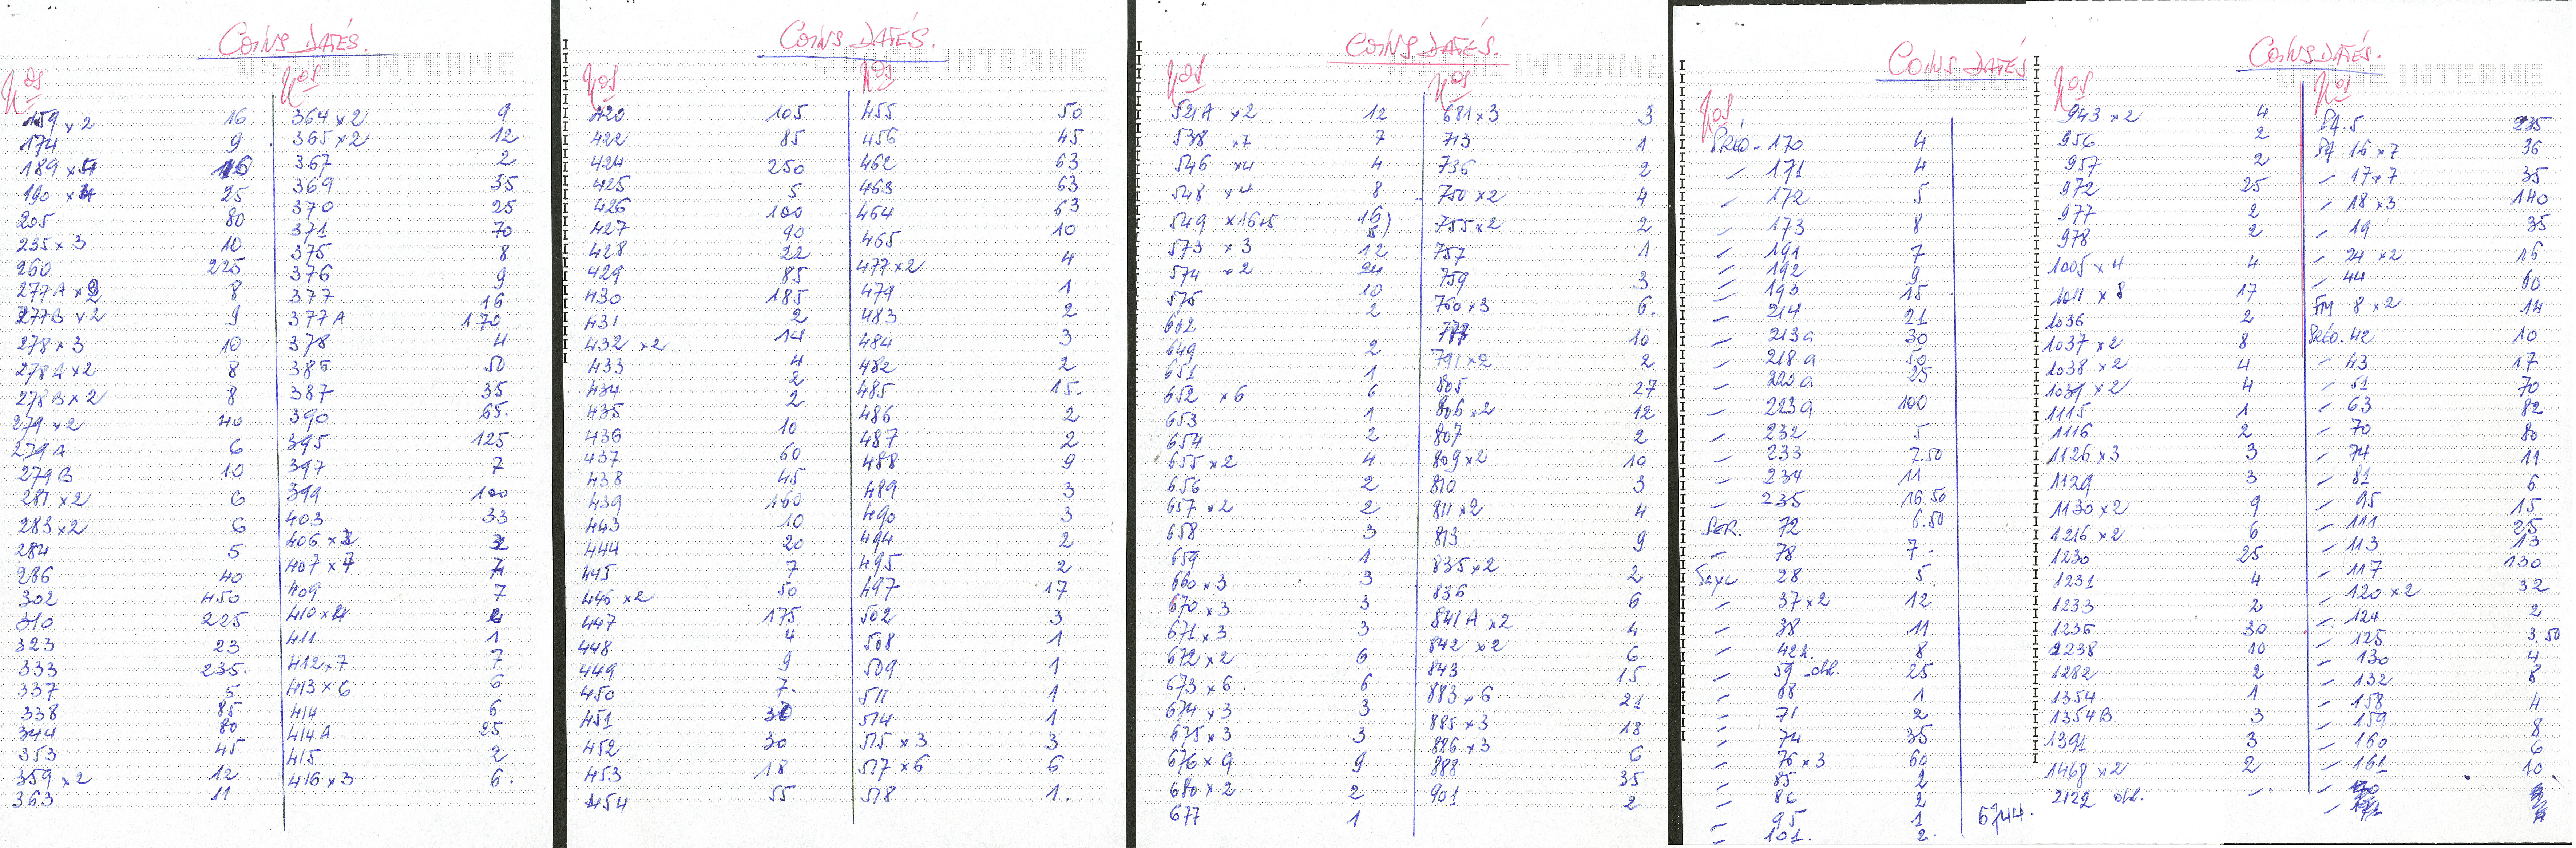 COINS DATÉS.
USAGE INTERNE
Nos
159 x2 16
174 9
189 x5 16
190 x4 25
205 80
235 x 3 10
260 225
277A x2 8
277B x2 9
278 x 3 10
278A x2 8
278B x2 8
279 x2 40
279A 6
279B 10
281 x2 6
283 x2 6
284 5
286 40
302 450
310 225
323 23
333 235.
337 5
338 85
344 80
353 45
359 x2 12
363 11
Nos
364 x2 9
365 x2 12
367 2
369 35
370 25
371 70
375 8
376 9
377 16
377A 170
378 4
385 50
387 35
390 65.
395 125
397 7
399 100
403 33
406 x3 3
407 x 7 7
409 7
410 x4 4
411 1
412 x7 7
413 x 6 6
414 6
414A 25
415 2
416 x 3 6.
COINS DATÉS.
USAGE INTERNE
Nos
420 105
422 85
424 250
425 5
426 100
427 90
428 22
429 85
430 185
431 2
432 x2 14
433 4
434 2
435 2
436 10
437 60
438 45
439 160
443 10
444 20
445 7
446 x2 50
447 175
448 4
449 9
450 7.
451 30
452 30
453 18
454 55
Nos
455 50
456 45
462 63
463 63
464 63
465 10
477 x2 4
479 1
483 2
484 3
482 2
485 15.
486 2
487 2
488 9
489 3
490 3
494 2
495 2
497 17
502 3
508 1
509 1
511 1
514 1
515 x 3 3
517 x 6 6
518 1.
COINS DATÉS.
USAGE INTERNE
Nos
521A x2 12
538 x7 7
546 x4 4
548 x4 8
549 x16+5 16
5)
573 x 3 12
574 x2 24
575 10
612 2
649 2
651 1
652 x 6 6
653 1
654 2
655 x2 4
656 2
657 x2 2
658 3
659 1
660 x 3 3
670 x 3 3
671 x 3 3
672 x 2 6
673 x 6 6
674 x 3 3
675 x 3 3
676 x 9 9
680 x 2 2
677 1
Nos
681 x 3 3
713 1
736 2
750 x2 4
755 x2 2
757 1
759 3
760 x 3 6.
777 10
791 x2 2
805 27
806 x2 12
807 2
809 x2 10
810 3
811 x2 4
813 9
835 x2 2
836 6
841A x2 4
842 x2 6
843 15
883 x 6 21
885 x 3 18
886 x 3 6
888 35
901 2
COINS DATÉS
USAGE
Nos
PRÉO - 170 4
- 171 4
- 172 5
- 173 8
- 191 7
- 192 9
- 193 15
- 214 21
- 213a 30
- 218a 50
- 220a 25
- 223a 100
- 232 5
- 233 7.50
- 234 11
- 235 16.50
SER. 72 6.50
- 78 7.
Taxe 28 5
- 37 x2 12
- 38 11
- 42 8
- 59 obl. 25
- 68 1
- 71 2
- 74 35
- 76 x 3 60
- 85 2
- 86 2
- 95 1
- 101. 2.
6744.
COINS DATÉS.
USAGE INTERNE
Nos
943 x2 4
956 2
957 2
972 25
977 2
978 2
1005 x 4 4
1011 x 8 17
1036 2
1037 x2 8
1038 x2 4
1039 x2 4
1115 1
1116 2
1126 x3 3
1129 3
1130 x2 9
1216 x2 6
1230 25
1231 4
1233 2
1236 30
2238 10
1282 2
1354 1
1354B. 3
1391 3
1468 x2 2
2122 obl. -.
Nos
PA. 5 235
PA 16 x7 36
- 17 x7 35
- 18 x 3 140
- 19 35
- 24 x2 16
- 44 60
FM 8 x2 14
PRÉO. 42 10
- 43 17
- 51 70
- 63 82
- 70 80
- 74 11
- 81 6
- 95 15
- 111 25
- 113 13
- 117 130
- 120 x2 32
- 124 2
- 125 3.50
- 130 4
- 132 8
- 158 4
- 159 8
- 160 6
- 161 10